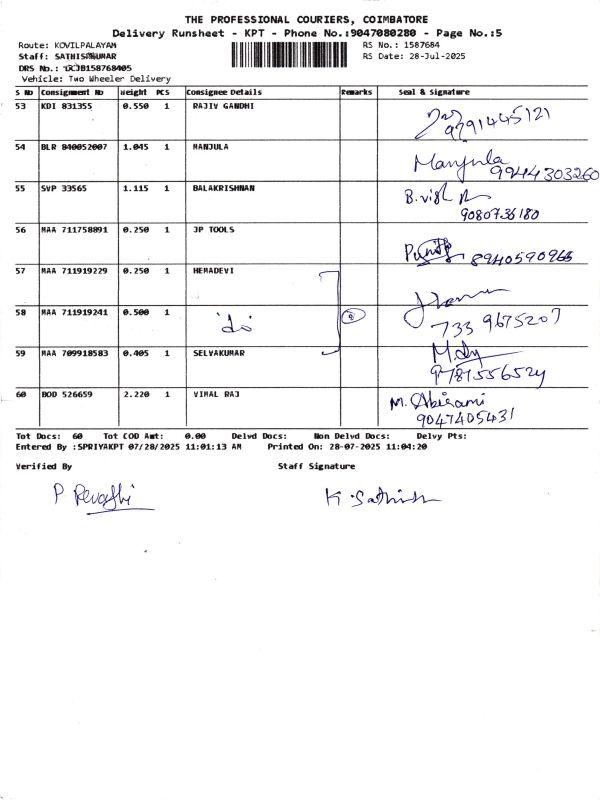 THE PROFESSIONAL COURIERS, COIMBATORE
Delivery Runsheet - KPT - Phone No.:9047080280 - Page No.:5
Route: KOVILPALAYAM RS No.: 1587684
Staff: SATHISHKUMAR RS Date: 28-Jul-2025
DRS No.: B158768405
Vehicle: Two Wheeler Delivery
S No Consignment No Weight PCS Consignee Details Remarks Seal & Signature
53 KDI 831355 0.550 1 RAJIV GANDHI
9791445121
54 BLR 840052007 1.045 1 MANJULA
Manjula
9944303260
55 SVP 33565 1.115 1 BALAKRISHNAN
9080736180
56 MAA 711758891 0.250 1 JP TOOLS
8940590966
57 MAA 711919229 0.250 1 HEMADEVI
58 MAA 711919241 0.500 1 do
733 9675207
59 MAA 709918583 0.405 1 SELVAKUMAR
9781556524
60 BOD 526659 2.220 1 VIMAL RAJ
M. Abirami
9047405431
Tot Docs: 60 Tot COD Amt: 0.00 Delvd Docs: Non Delvd Docs: Delvy Pts:
Entered By :SPRIYAKPT 07/28/2025 11:01:13 AM Printed On: 28-07-2025 11:04:20
Verified By Staff Signature
P Revathi K. Sathish